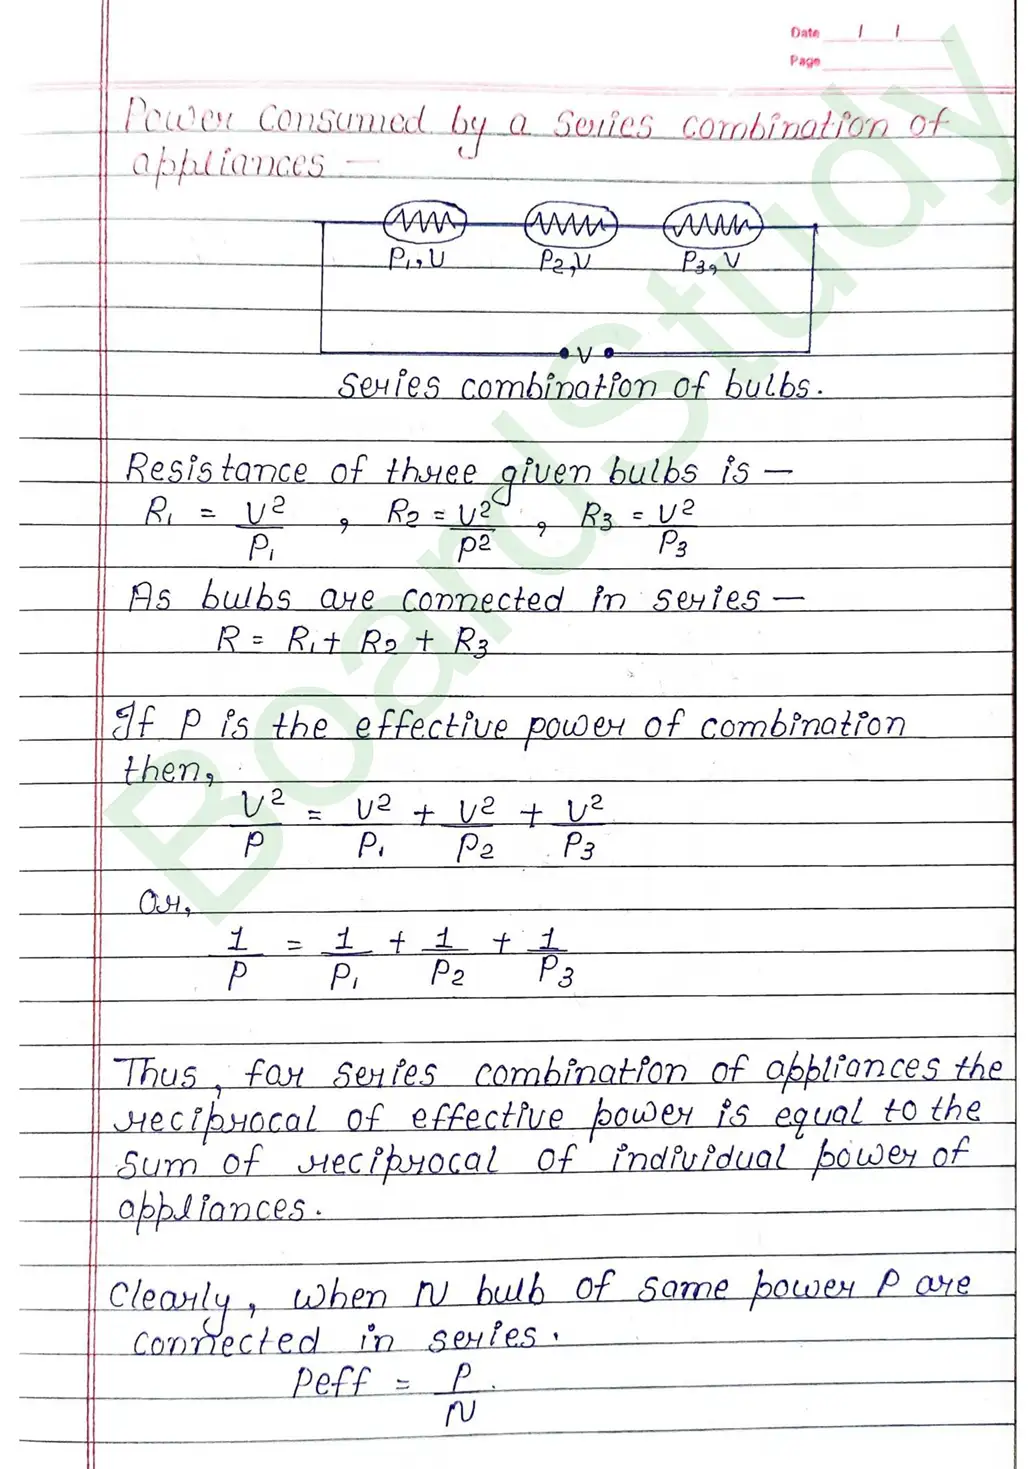 Date / /
Page
Power consumed by a series combination of
appliances —
P₁, V P₂, V P₃, V
V
Series combination of bulbs.
Resistance of three given bulbs is —
R₁ = V²/P₁ , R₂ = V²/P2 , R₃ = V²/P₃
As bulbs are connected in series —
R = R₁ + R₂ + R₃
If P is the effective power of combination
then,
V²/P = V²/P₁ + V²/P₂ + V²/P₃
Or,
1/P = 1/P₁ + 1/P₂ + 1/P₃
Thus, for series combination of appliances the
reciprocal of effective power is equal to the
sum of reciprocal of individual power of
appliances.
Clearly, when N bulb of same power P are
connected in series.
Peff = P/N
BoardStudy